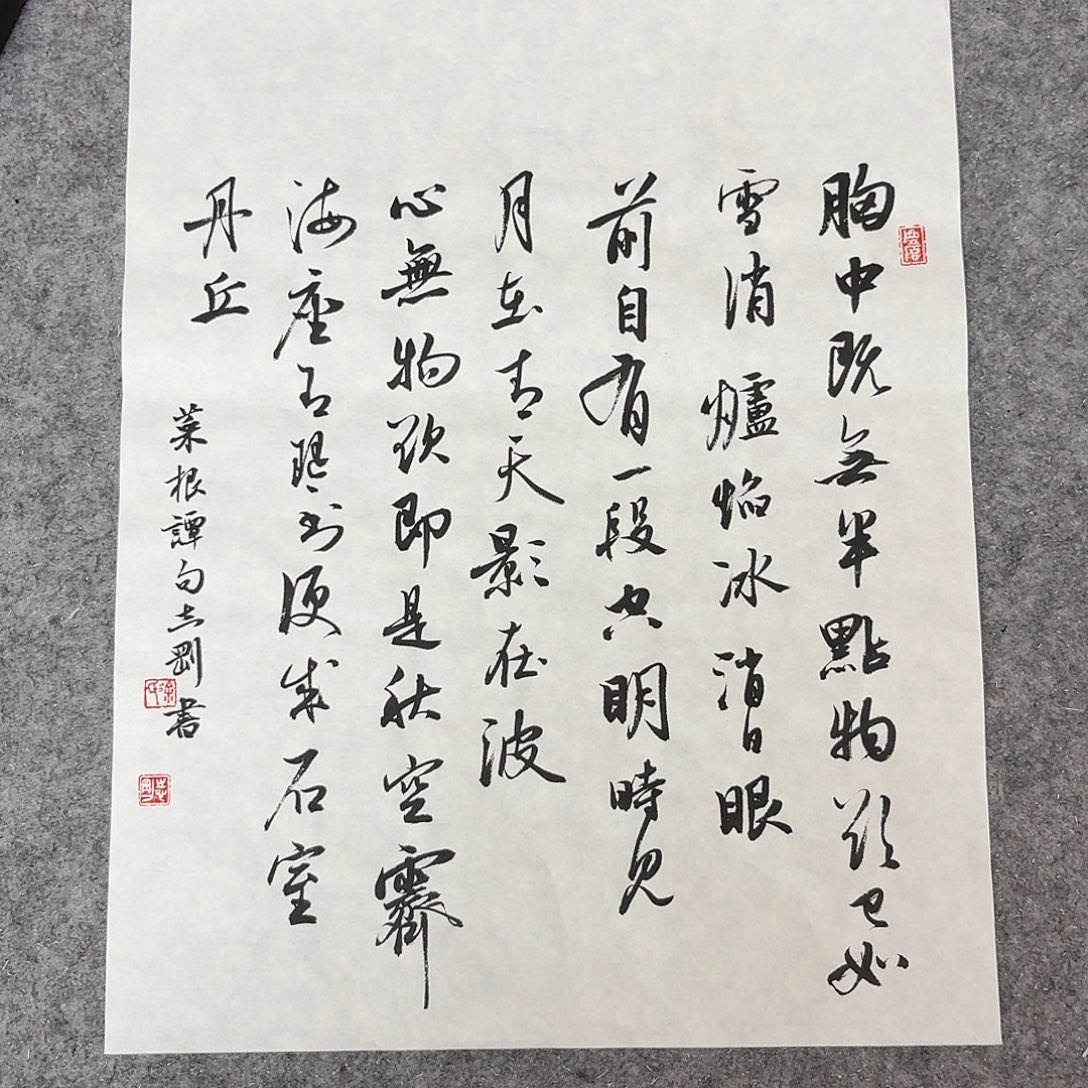 胸中既無半點物欲已如
雪消爐焰冰消日眼
前自有一段空明時見
月在青天影在波
心無物欲即是秋空霽
海座有琴书便成石室
丹丘
菜根譚句志剛書